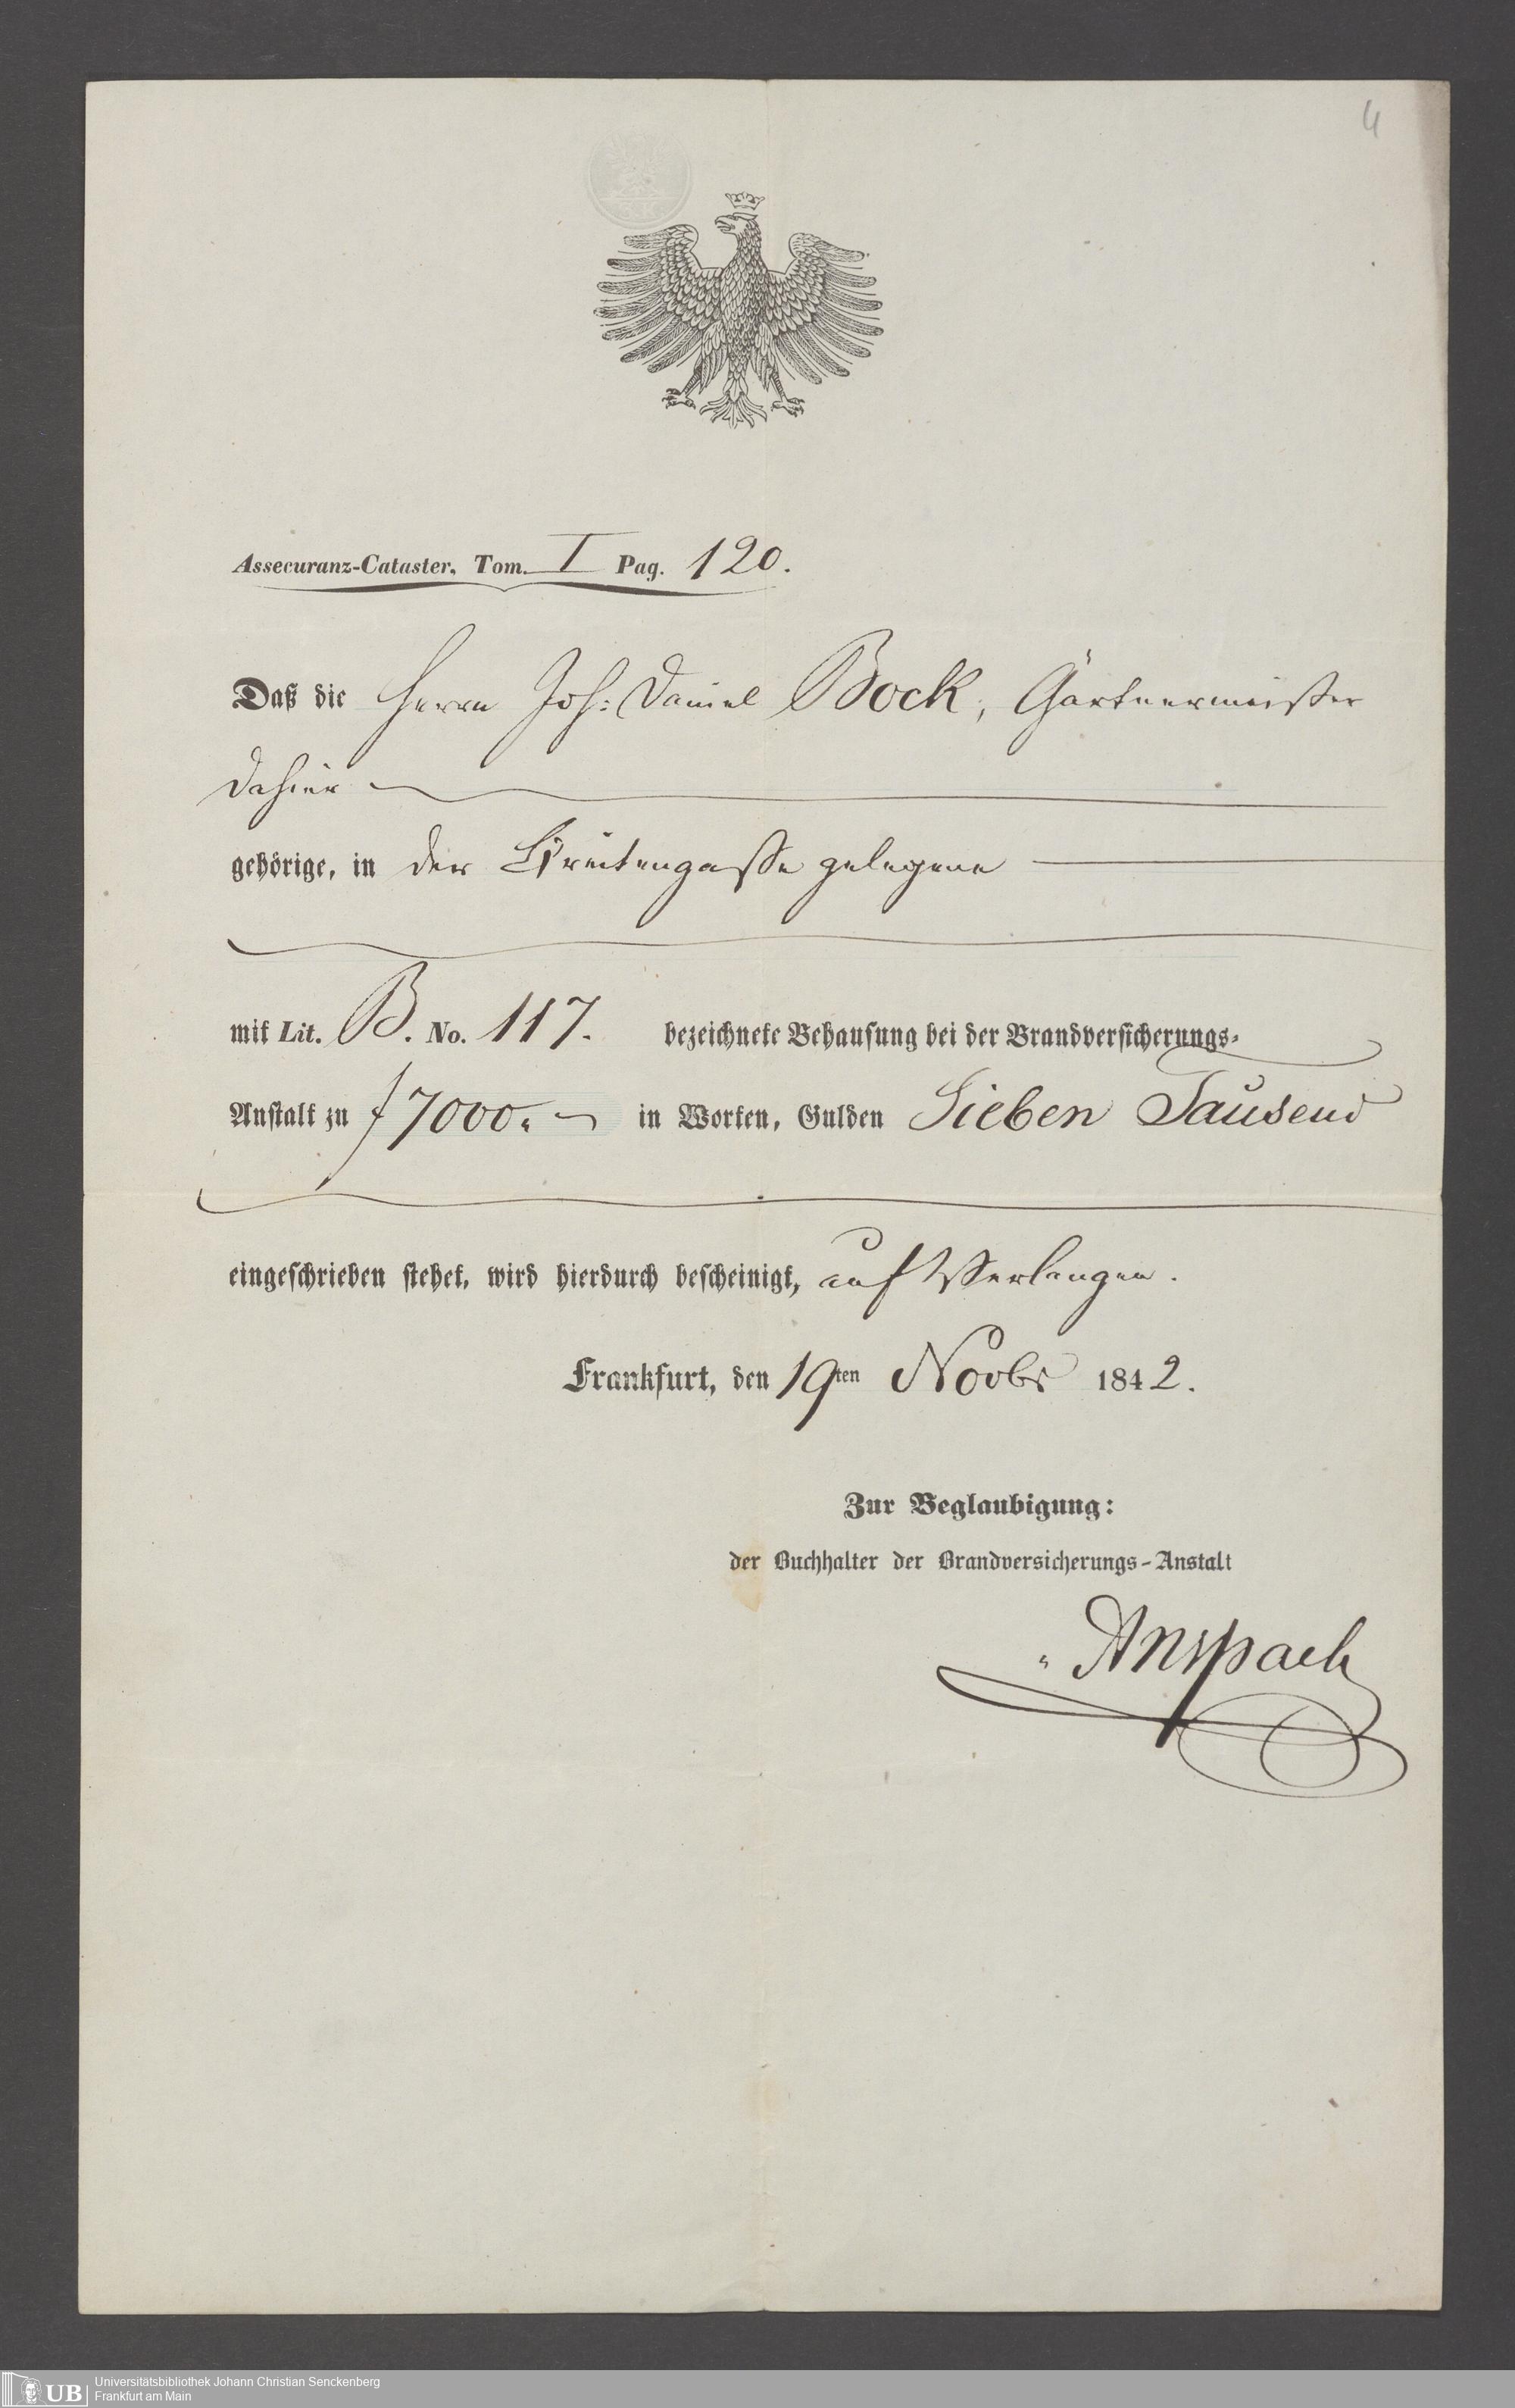 4
Assecuranz-Cataster, Tom. I Pag. 120.
Daß die Herrn Joh: Daniel Bock, Gärtnermeister
dahier
gehörige, in der Breitengasse gelegene
mit Lit. B. No. 117. bezeichnete Behausung bei der Brandversicherungs-
Anstalt zu f 7000.- in Worten, Gulden Sieben Tausend
eingeschrieben stehet, wird hierdurch bescheinigt, auf Verlangen.
Frankfurt, den 19ten Novbr 1842.
Zur Beglaubigung:
der Buchhalter der Brandversicherungs-Anstalt
Anspach
UB Universitätsbibliothek Johann Christian Senckenberg
Frankfurt am Main